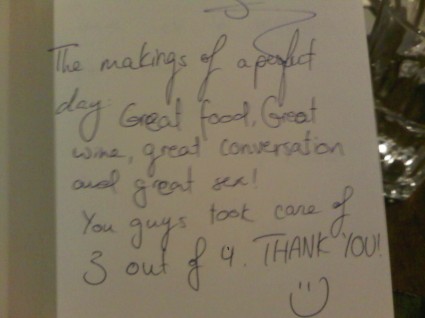 The makings of a perfect
day: Great food, Great
wine, great conversation
and great sex!
You guys took care of
3 out of 4. THANK YOU!